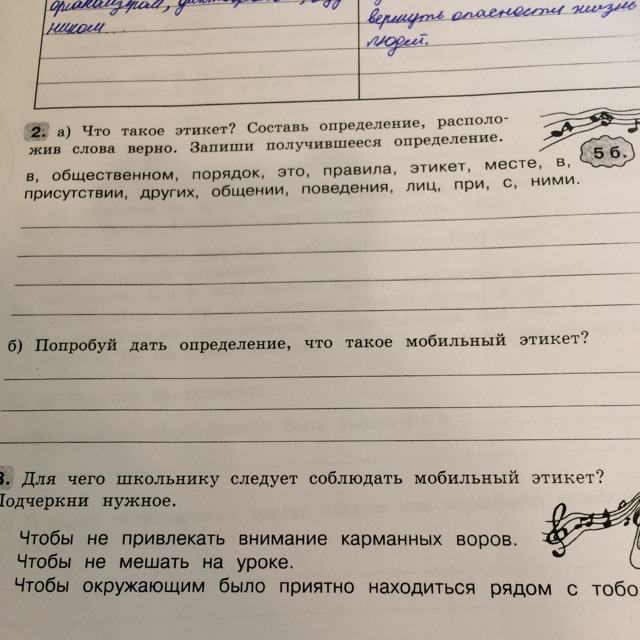 ником...
вернуть опасности жизнь
людей.
2. а) Что такое этикет? Составь определение, располо-
жив слова верно. Запиши получившееся определение.
5 б.
в, общественном, порядок, это, правила, этикет, месте, в,
присутствии, других, общении, поведения, лиц, при, с, ними.
б) Попробуй дать определение, что такое мобильный этикет?
3. Для чего школьнику следует соблюдать мобильный этикет?
Подчеркни нужное.
Чтобы не привлекать внимание карманных воров.
Чтобы не мешать на уроке.
Чтобы окружающим было приятно находиться рядом с тобо